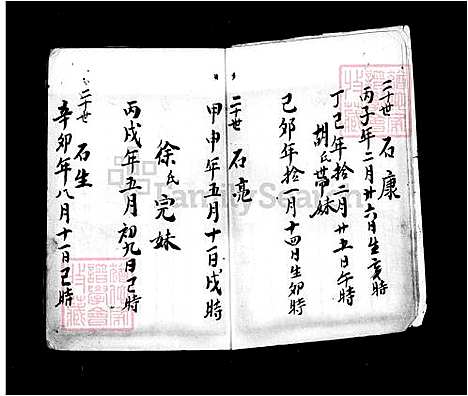 二十世 石康
丙子年二月廿六日生亥時
丁巳年拾二月廿五日午時
胡氏帶妹
己卯年拾一月十四日生卯時
二十世 石亮
甲申年五月十百戌時
徐氏完妹
丙戌年五月初九日巳時
二十世 石生
辛卯年八月十一日巳時
FamilySearch